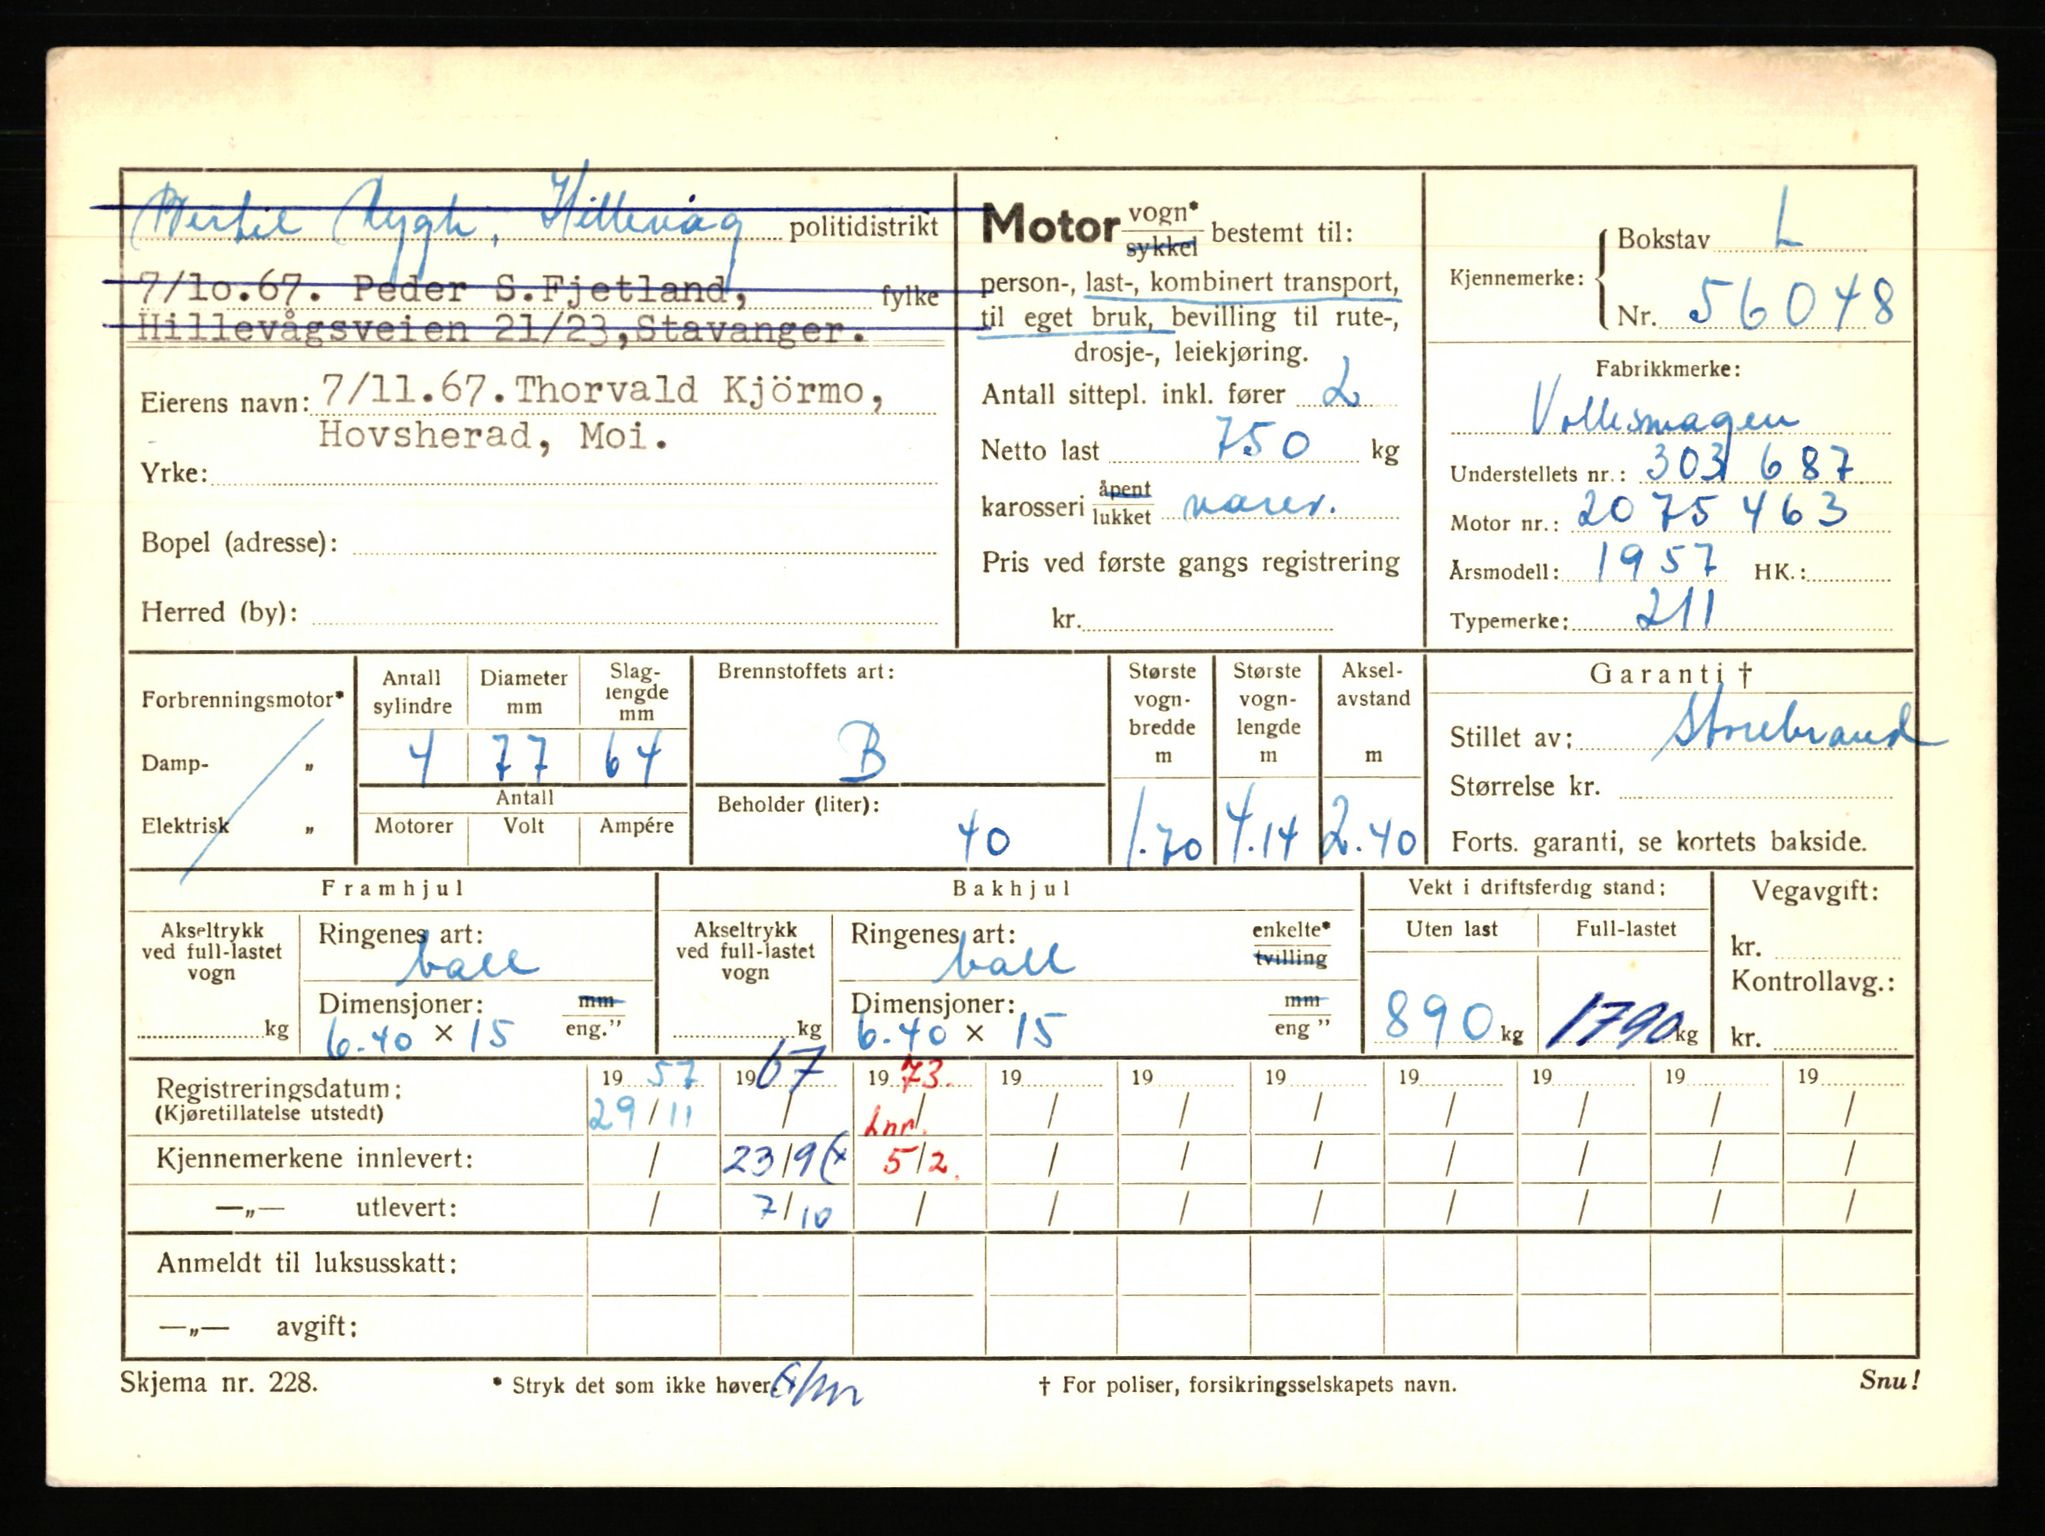 Bertil Rygh, Hillevåg politidistrikt
7/10.67. Peder S.Fjetland, fylke
Hillevågsveien 21/23, Stavanger.
Eierens navn: 7/11.67. Thorvald Kjörmo,
Hovsherad, Moi.
Yrke:
Bopel (adresse):
Herred (by):
Motor vogn* sykkel bestemt til:
person-, last-, kombinert transport,
til eget bruk, bevilling til rute-,
drosje-, leiekjøring.
Antall sittepl. inkl. fører 2
Netto last 750 kg
karosseri åpent lukket varev.
Pris ved første gangs registrering
kr.
Kjennemerke: Bokstav L
Nr. 56048
Fabrikkmerke:
Volkswagen
Understellets nr.: 303 687
Motor nr.: 2075463
Årsmodell: 1957 HK.:
Typemerke: 211
Forbrenningsmotor*
Damp- „
Elektrisk „
Antall sylindre Diameter mm Slaglengde mm
4 77 64
Antall
Motorer Volt Ampére
Brennstoffets art:
B
Beholder (liter):
40
Største vognbredde m
1.70
Største vognlengde m
4.14
Akselavstand m
2.40
Garanti †
Stillet av: Storebrand
Størrelse kr.
Forts. garanti, se kortets bakside.
Framhjul
Akseltrykk ved full-lastet vogn
kg
Ringenes art:
ball
Dimensjoner: mm
6.40 × 15 eng."
Bakhjul
Akseltrykk ved full-lastet vogn
kg
Ringenes art: enkelte*
ball tvilling
Dimensjoner: mm
6.40 × 15 eng "
Vekt i driftsferdig stand:
Uten last Full-lastet
890 kg 1790 kg
Vegavgift:
kr.
Kontrollavg.:
kr.
Registreringsdatum: 19 57 19 67 19 73. 19 19 19 19 19 19 19
(Kjøretillatelse utstedt) 29/11 / Lnr. / / / / / / / /
Kjennemerkene innlevert: / 23/9 (x 5/2. / / / / / / /
—„— utlevert: / 7/10 / / / / / / / /
Anmeldt til luksusskatt:
—„— avgift:
Skjema nr. 228. * Stryk det som ikke høver. † For poliser, forsikringsselskapets navn. Snu!